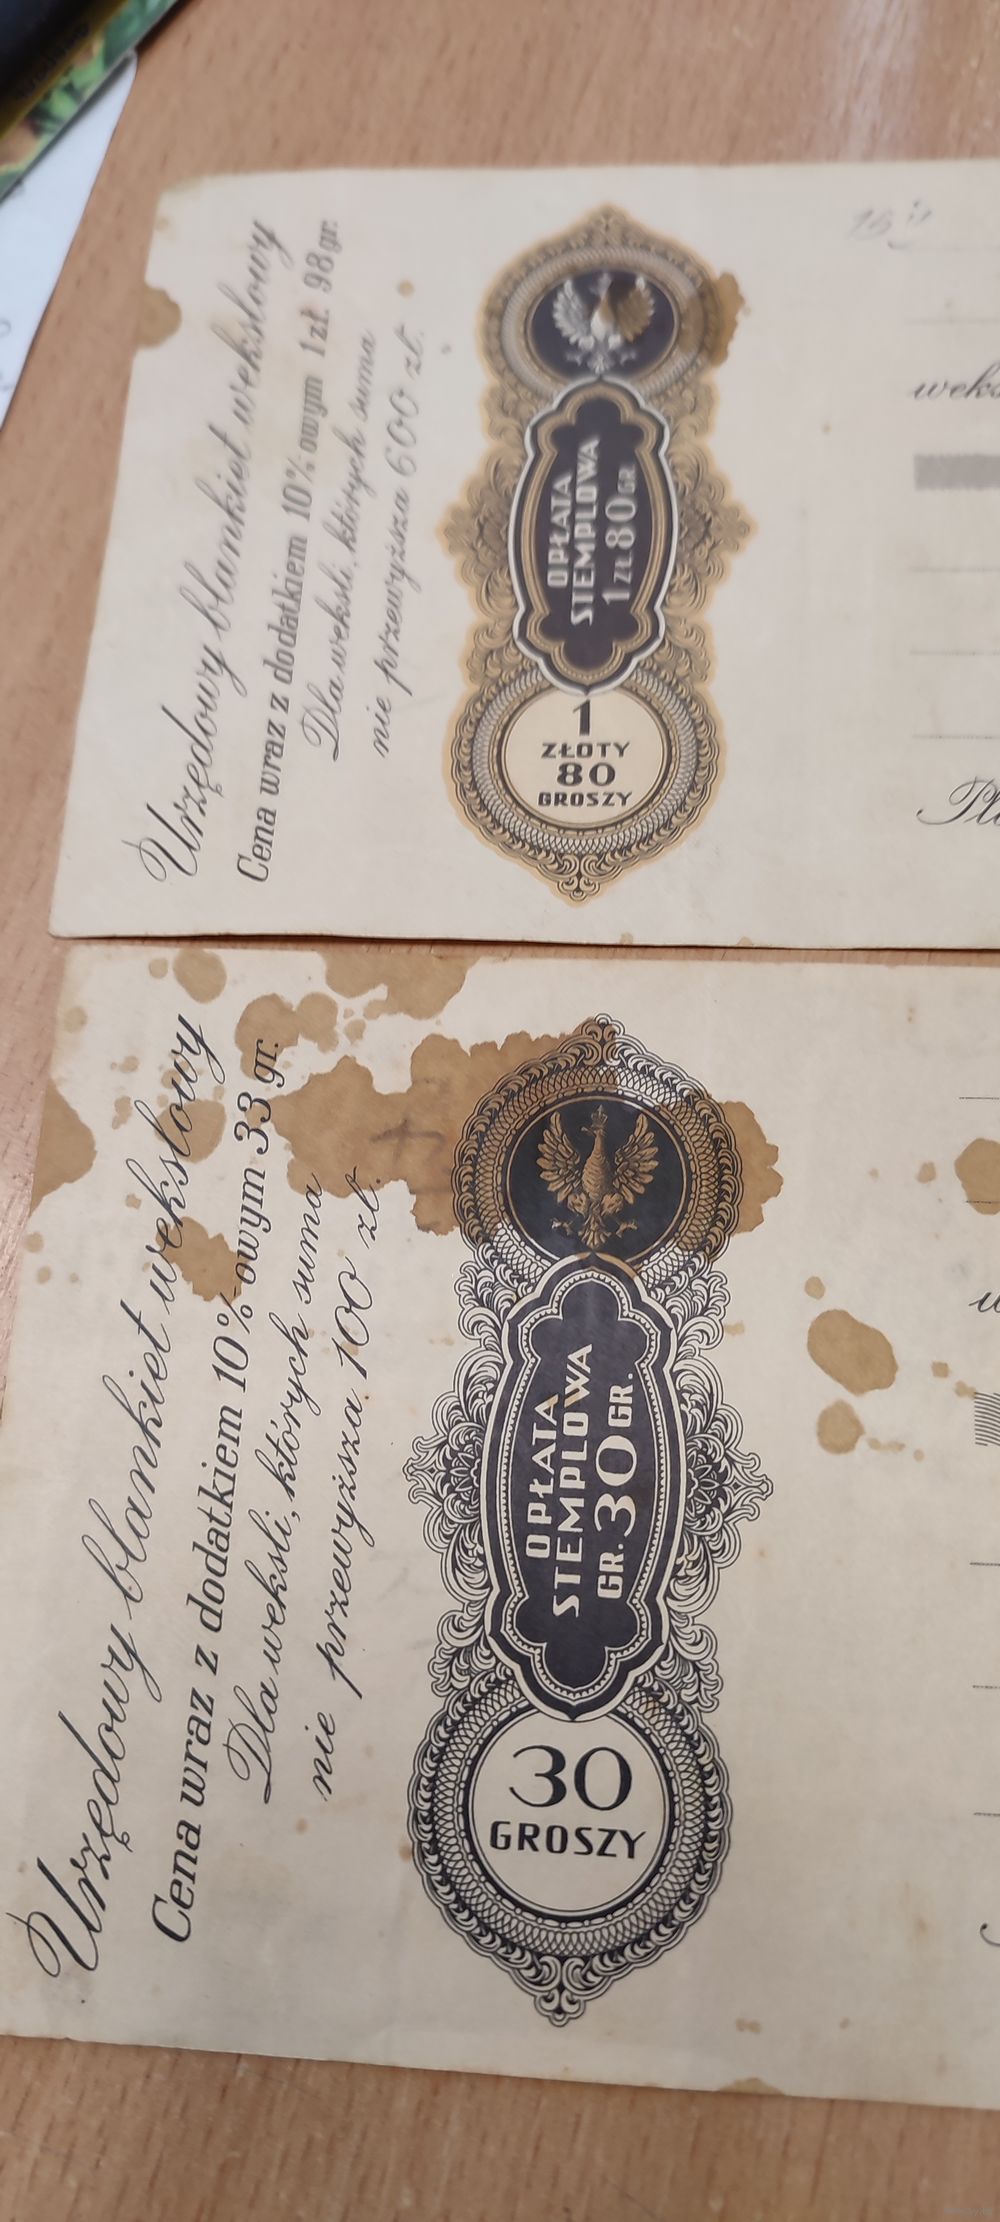 Urzędowy blankiet wekslowy
Cena wraz z dodatkiem 10%owym 1 zł. 98 gr.
Dla weksli, których suma
nie przewyższa 600 zł.
OPŁATA
STEMPLOWA
1 ZŁ. 80 GR.
1
ZŁOTY
80
GROSZY
Urzędowy blankiet wekslowy
Cena wraz z dodatkiem 10%owym 33 gr.
Dla weksli, których suma
nie przewyższa 100 zł.
OPŁATA
STEMPLOWA
GR. 30 GR.
30
GROSZY